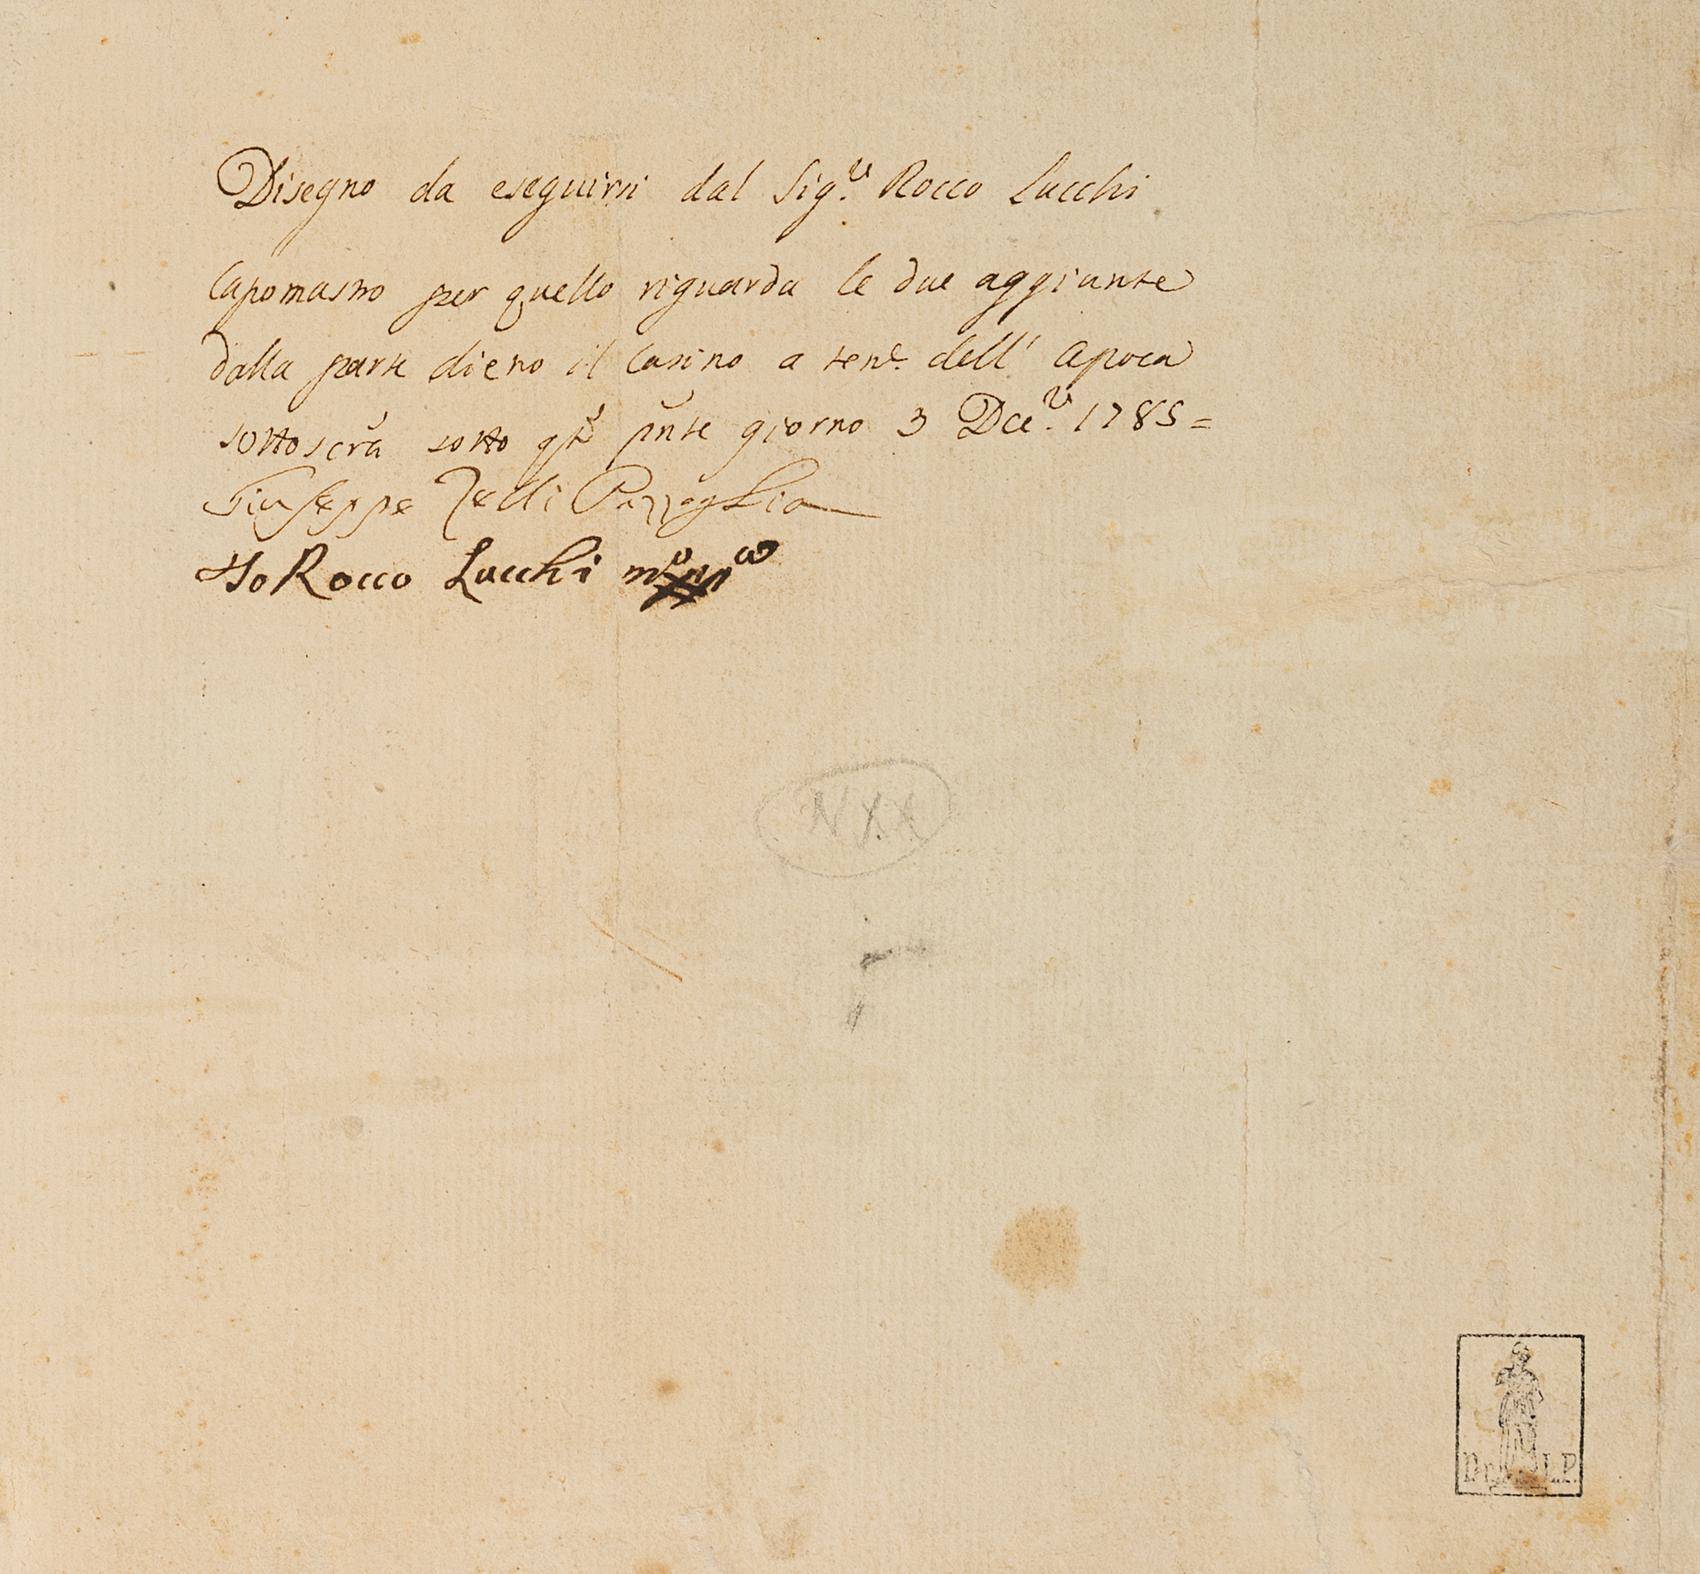 Disegno da eseguirsi dal Sig.r Rocco Lucchi
Capomastro per quello riguarda le due aggiunte
dalla parte dietro il Casino a ten.e dell' Apoca
sottoscrã sotto qto pñte giorno 3 Dce.r 1785=
Giuseppe Pazzaglia
Io Rocco Lucchi
L.P.